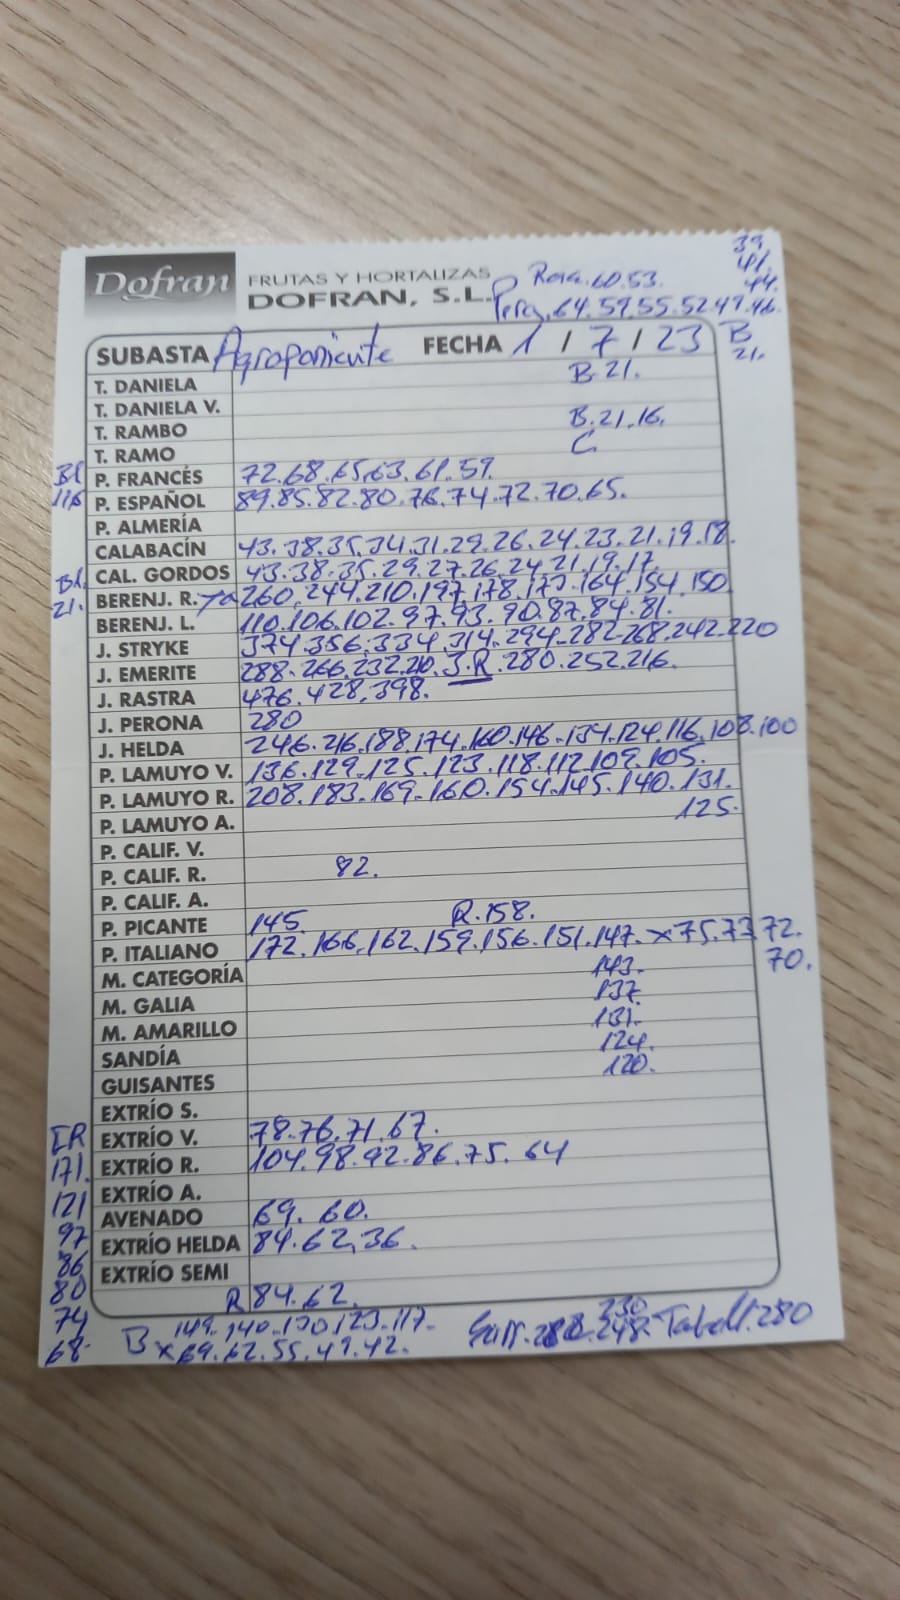 Dofran FRUTAS Y HORTALIZAS
DOFRAN, S.L.
Rosa.60.53.
Pera.64.59.55.52.49.46.
39.
41.
44.
B
21.
SUBASTA Agroponiente FECHA 1 / 7 / 23
T. DANIELA B.21.
T. DANIELA V.
T. RAMBO B.21.16.
T. RAMO C
Bl P. FRANCÉS 72.68.65.63.61.59.
116 P. ESPAÑOL 89.85.82.80.76.74.72.70.65.
P. ALMERÍA
CALABACÍN 43.38.35.34.31.29.26.24.23.21.19.18.
Bl. CAL. GORDOS 43.38.35.29.27.26.24.21.19.17.
21. BERENJ. R. 260.244.210.197.178.173.164.154.150
BERENJ. L. 110.106.102.97.93.90.87.84.81.
J. STRYKE 374.356.334.314.294.282.268.242.220
J. EMERITE 288.266.232.210. J.R.280.252.216.
J. RASTRA 476.428.398.
J. PERONA 280
J. HELDA 246.216.188.174.160.146.134.124.116.108.100
P. LAMUYO V. 136.129.125.123.118.112.109.105.
P. LAMUYO R. 208.183.169.160.154.145.140.131.
125.
P. LAMUYO A.
P. CALIF. V.
P. CALIF. R. 82.
P. CALIF. A.
P. PICANTE 145. R.158.
P. ITALIANO 172.166.162.159.156.151.147. x75.73.72.
70.
M. CATEGORÍA 143.
M. GALIA 137.
M. AMARILLO 131.
SANDÍA 124.
GUISANTES 120.
EXTRÍO S.
ER EXTRÍO V. 78.76.71.67.
171. EXTRÍO R. 104.98.92.86.75.64
121 EXTRÍO A.
97 AVENADO 69.60.
86 EXTRÍO HELDA 84.62.36.
80 EXTRÍO SEMI
74 R 84.62.
68. B 149.140.130.123.117.
x69.62.55.49.42.
230
248. Tabell.280